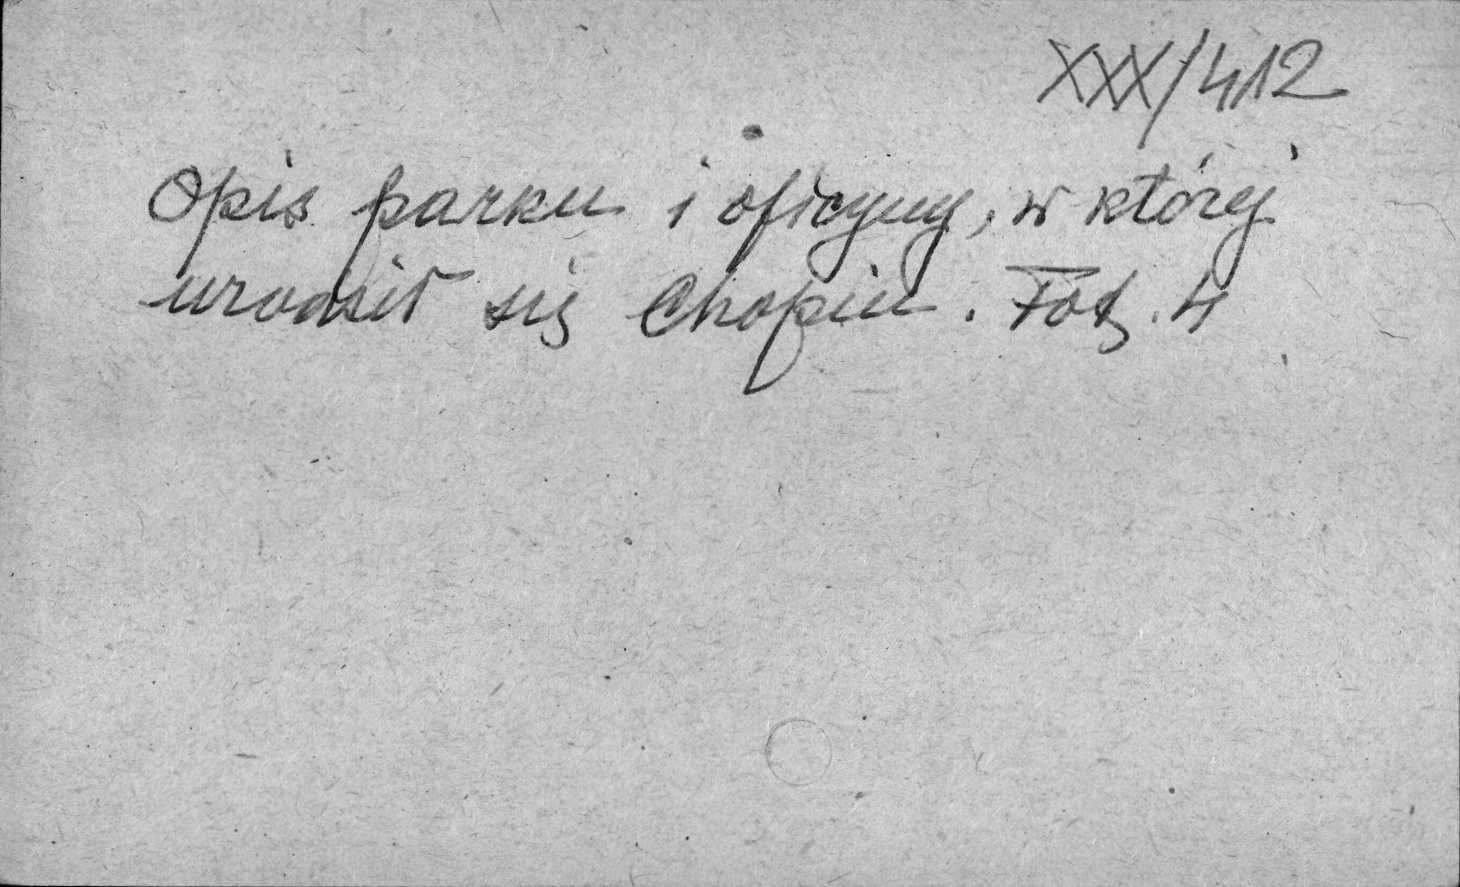 XXX/412
Opis parku i oficyny, w której
urodził się Chopin. Fot. 4